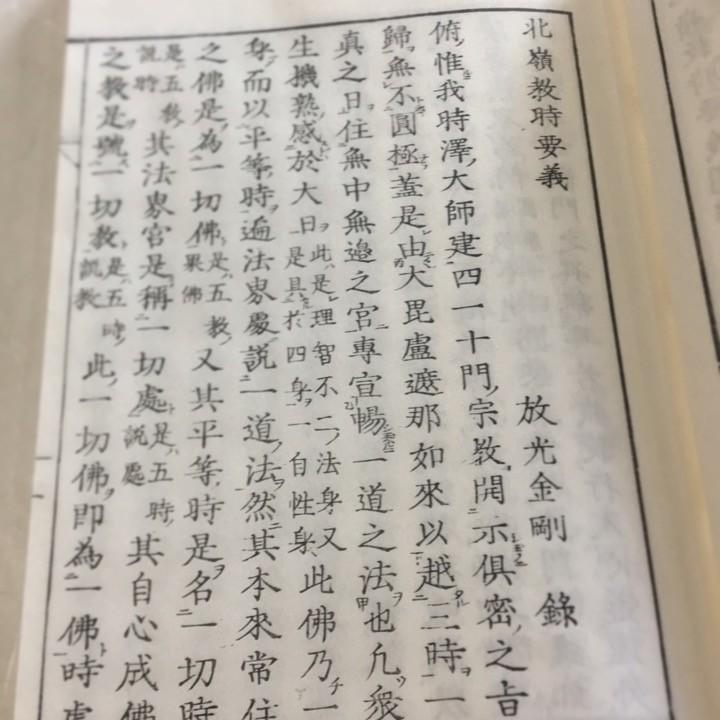 北嶺教時要義
放光金剛 錄
俯惟我時澤大師建四一十門宗教開示俱密之旨
歸無不圓極蓋是由大毘盧遮那如來以越三時一
真之日住無中無邊之宮專宣暢一道之法也凡衆
生機熟感於大日此是理智不二法身又是具於四身一自性身此佛乃一
身而以平等時遍法界處說一道法然其本來常住
之佛是為一切佛是五教果佛又其平等時是名一切時
是五教說時其法界宮是稱一切處是五時說處其自心成佛
之教是號一切教是五時說教此一切佛即為一佛時處